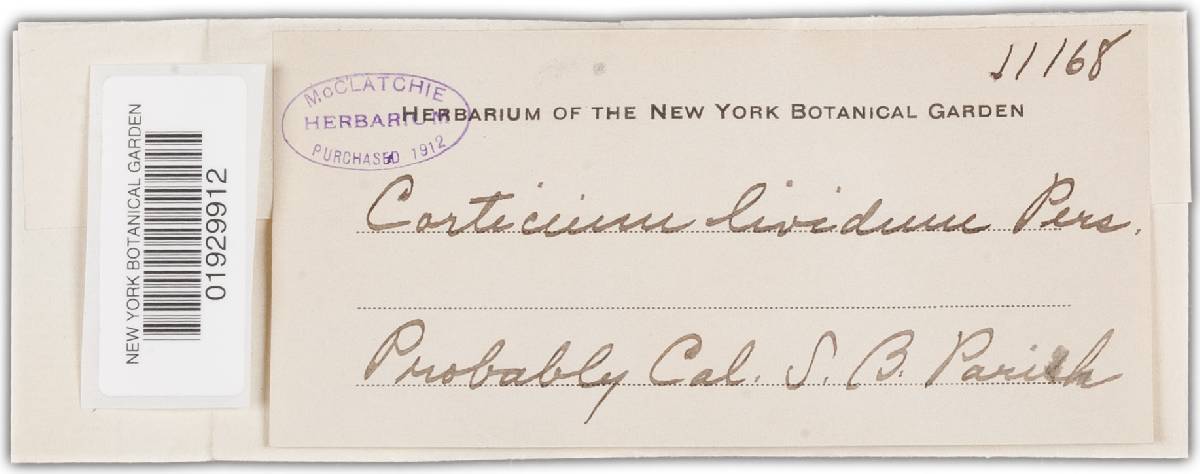 11168
McCLATCHIE
HERBARIUM
PURCHASED 1912
HERBARIUM OF THE NEW YORK BOTANICAL GARDEN
Corticium lividum Pers.
Probably Cal. S. B. Parish
NEW YORK BOTANICAL GARDEN
01929912